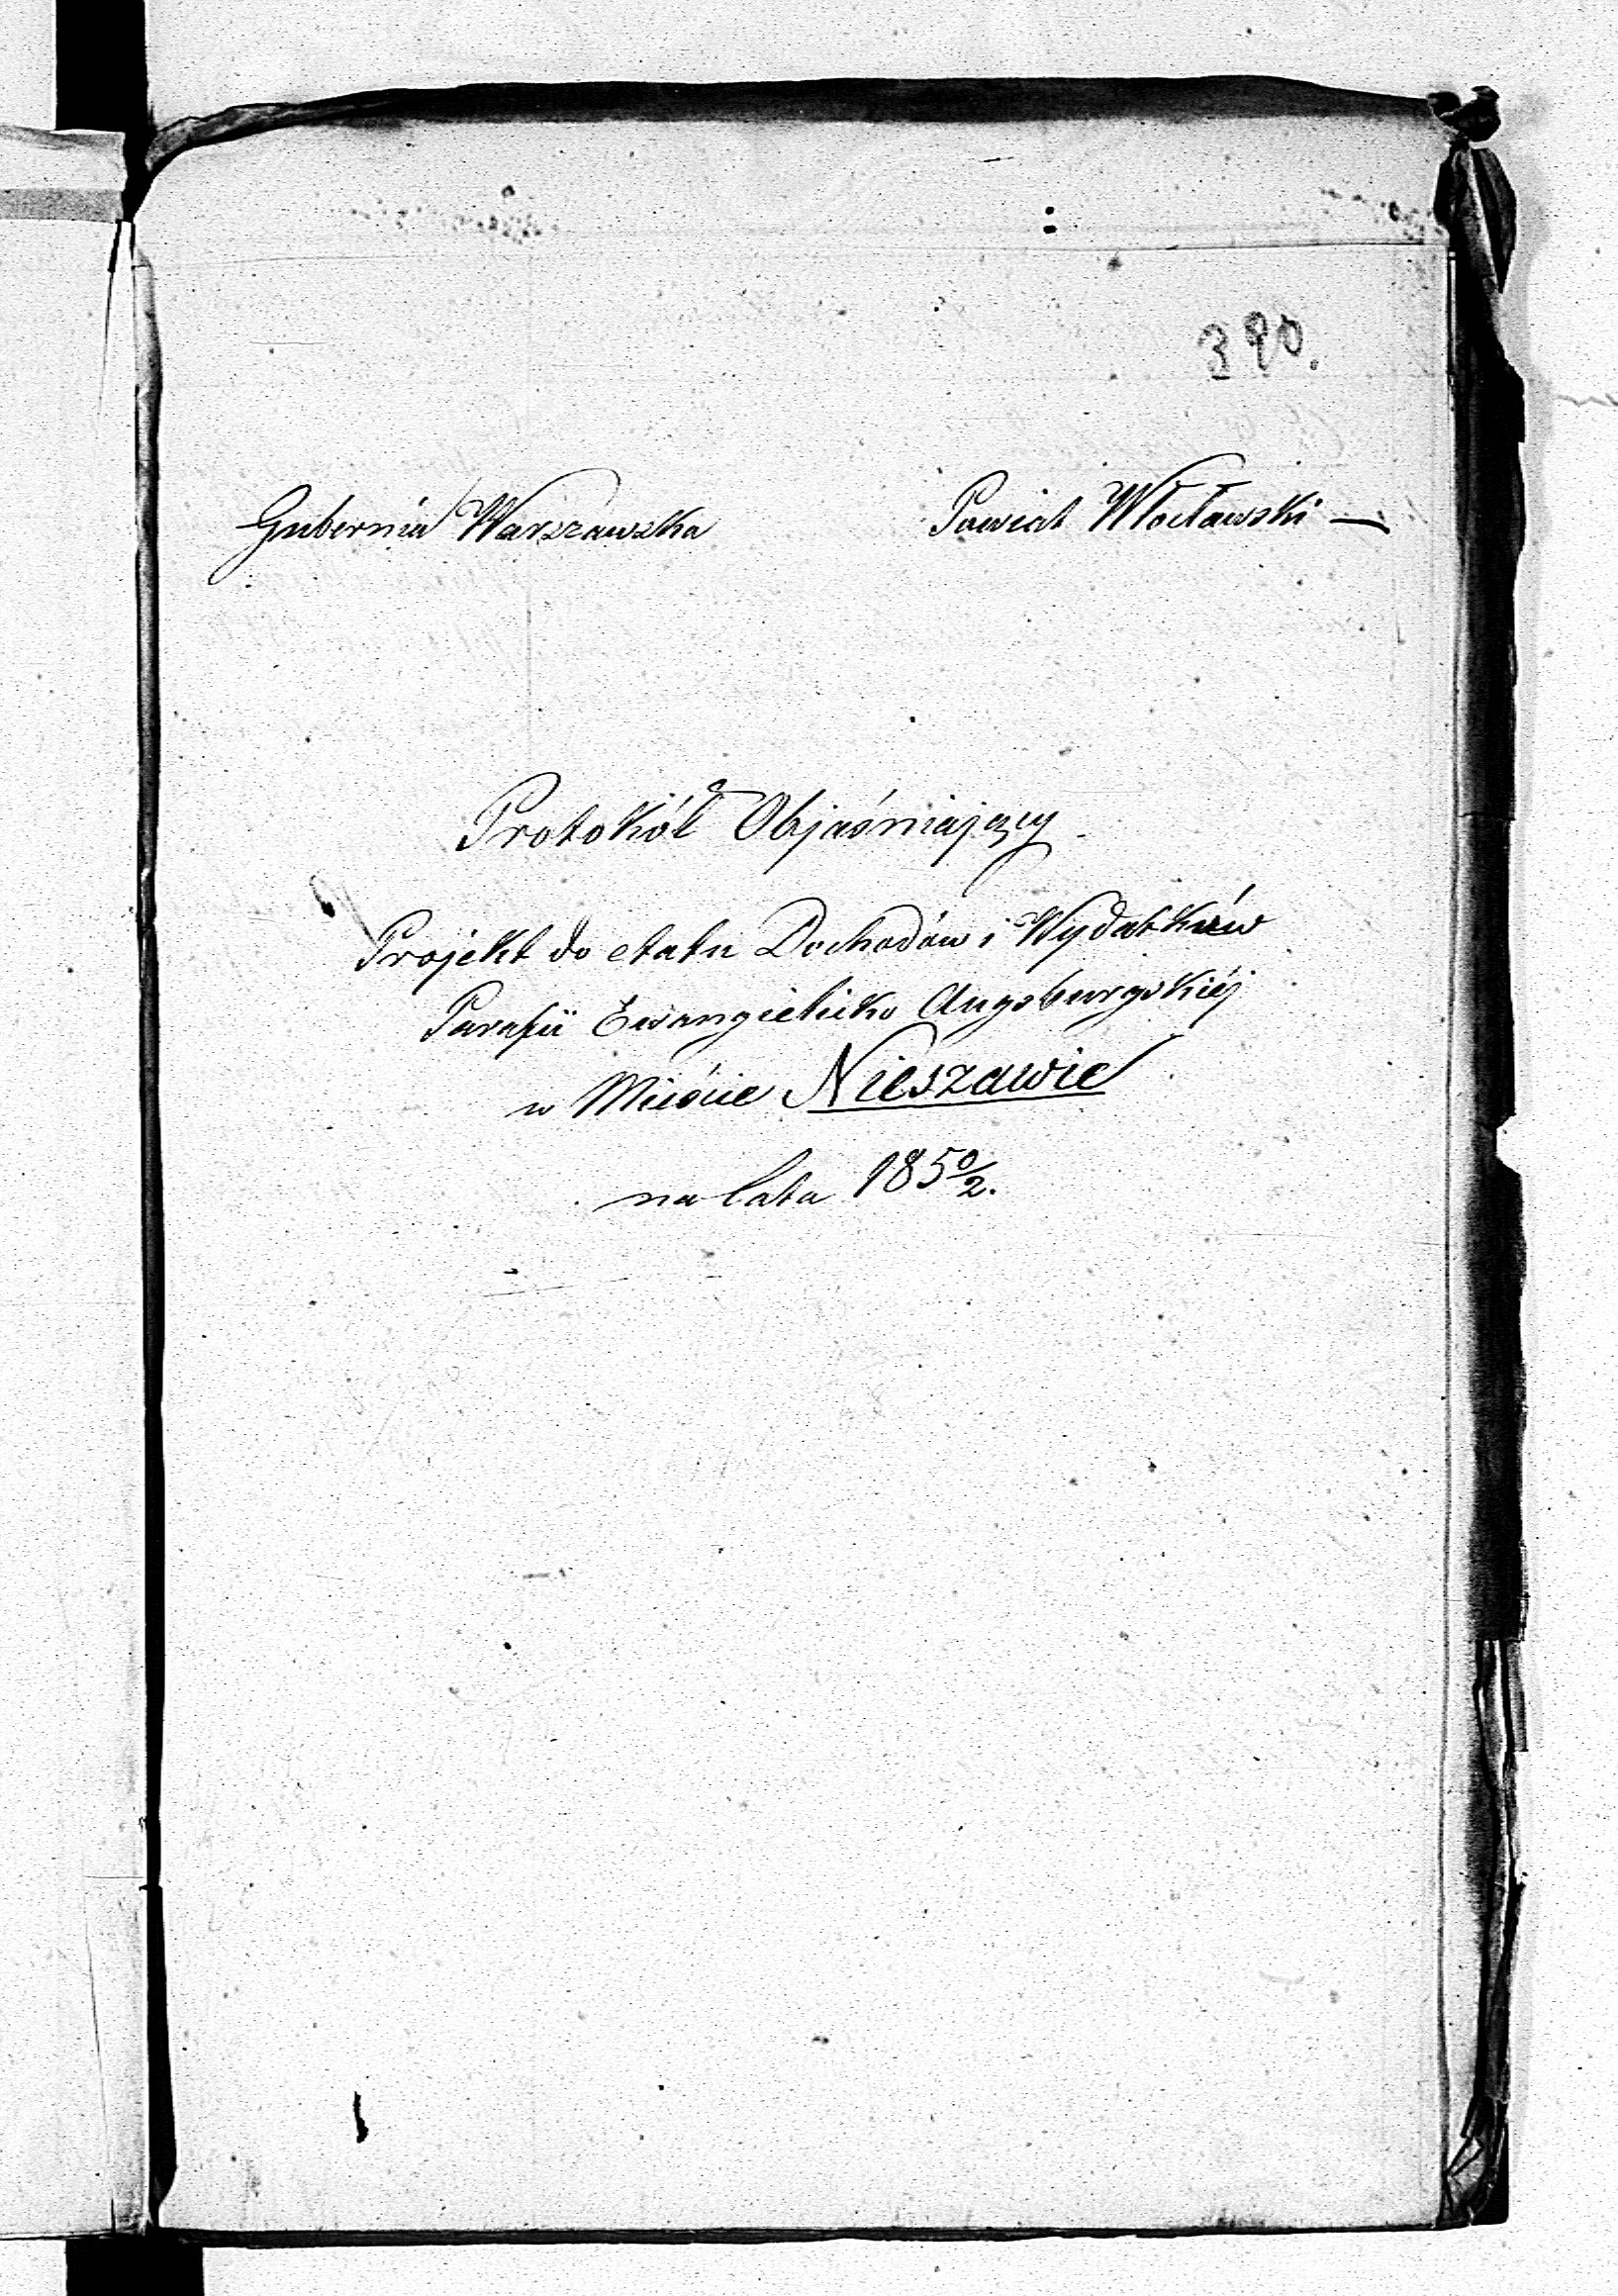 390.
Gubernia Warszawska
Powiat Włocławski —
Protokół Objaśniający
Projekt do etatu Dochodów i Wydatków
Parafii Ewangielicko Augsburgskiéj
w Mieście Nieszawie
na lata 185 0/2.